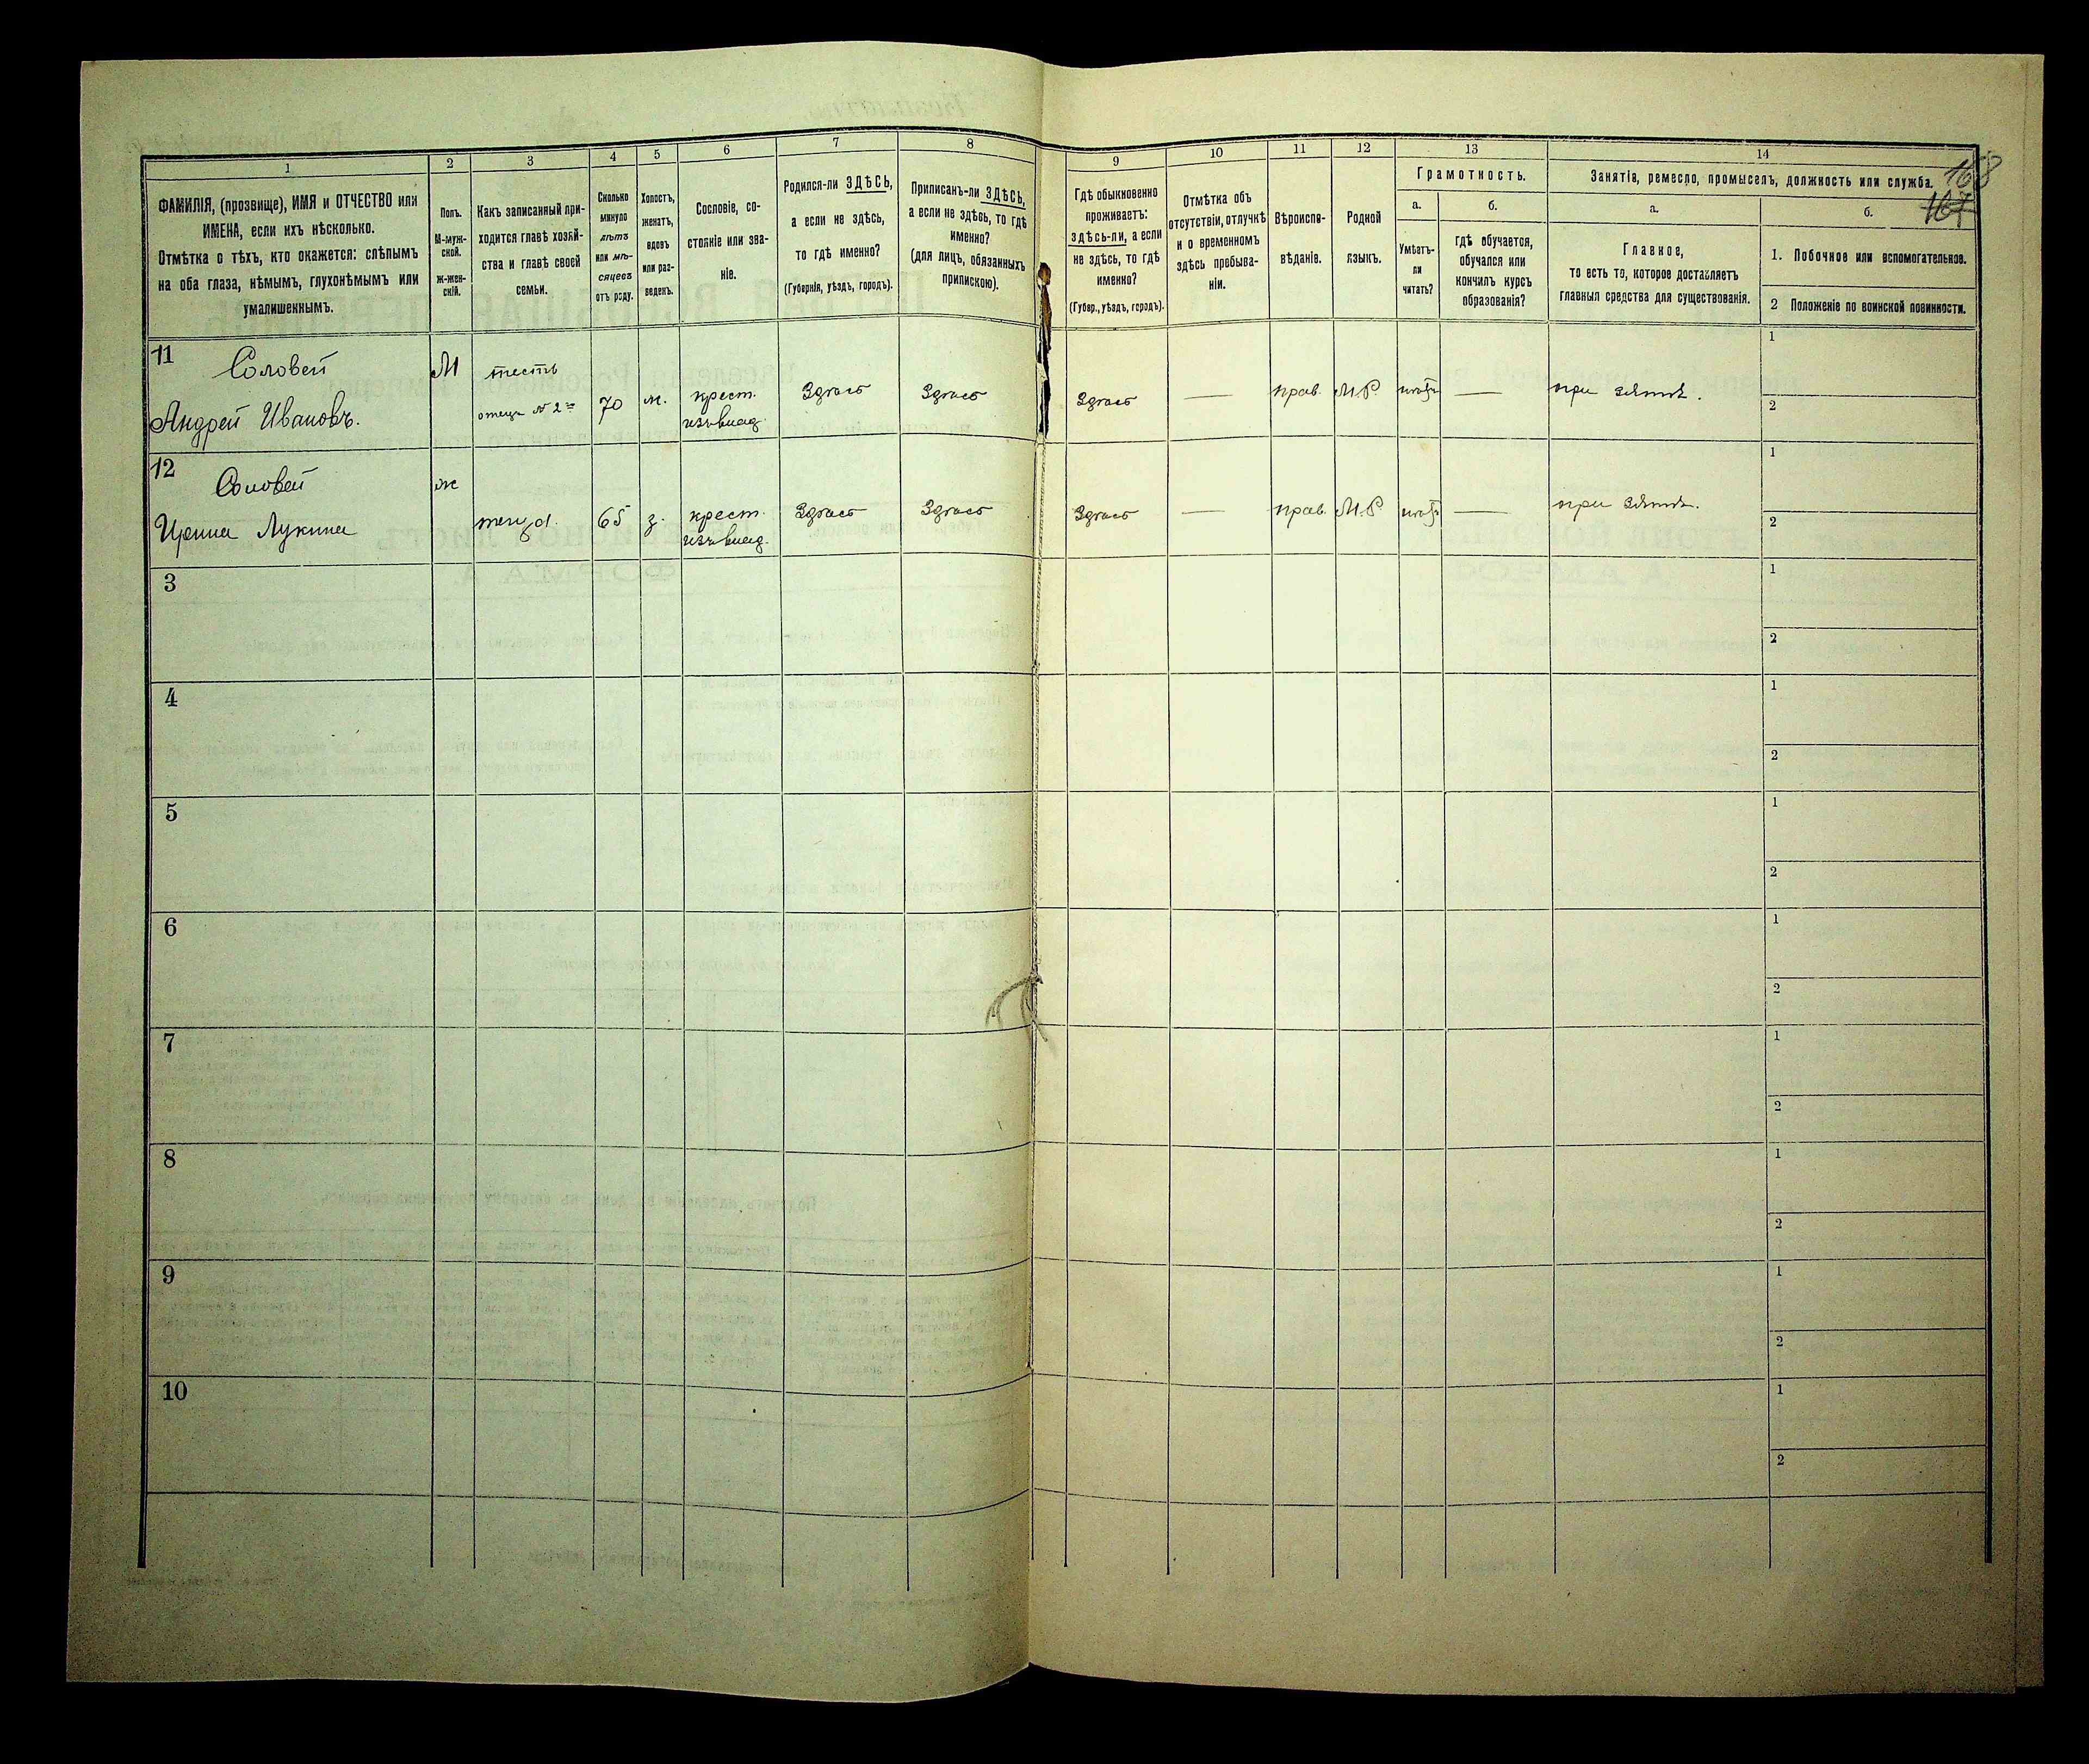 168
167
1
2
3
4
5
6
7
8
9
10
11
12
13
14
ФАМИЛІЯ, (прозвище), ИМЯ и ОТЧЕСТВО или
ИМЕНА, если ихъ нѣсколько.
Отмѣтка о тѣхъ, кто окажется: слѣпымъ
на оба глаза, нѣмымъ, глухонѣмымъ или
умалишеннымъ.
Полъ.
М-муж-
ской.
ж-жен-
скій.
Какъ записанный при-
ходится главѣ хозяй-
ства и главѣ своей
семьи.
Сколько
минуло
лѣтъ
или мѣ-
сяцевъ
отъ роду.
Холостъ,
женатъ,
вдовъ
или раз-
веденъ.
Сословіе, со-
стояніе или зва-
ніе.
Родился-ли ЗДѢСЬ,
а если не здѣсь,
то гдѣ именно?
(Губернія, уѣздъ, городъ).
Приписанъ-ли ЗДѢСЬ,
а если не здѣсь, то гдѣ
именно?
(для лицъ, обязанныхъ
припискою).
Гдѣ обыкновенно
проживаетъ:
здѣсь-ли, а если
не здѣсь, то гдѣ
именно?
(Губер., уѣздъ, городъ).
Отмѣтка объ
отсутствіи, отлучкѣ
и о временномъ
здѣсь пребыва-
ніи.
Вѣроиспо-
вѣданіе.
Родной
языкъ.
Грамотность.
а.
Умѣетъ-
ли
читать?
б.
гдѣ обучается,
обучался или
кончилъ курсъ
образованія?
Занятія, ремесло, промыселъ, должность или служба.
а.
Главное,
то есть то, которое доставляетъ
главныя средства для существованія.
б.
1. Побочное или вспомогательное.
2 Положеніе по воинской повинности.
11
Соловей
Андрей Ивановъ.
М
тесть
отецъ № 2
70
ж.
крест.
изъ влад.
Здѣсь
Здѣсь
Здѣсь
—
прав.
М.Р.
нѣтъ
—
при зятѣ.
1
2
12
Соловей
Ирина Лукина
ж
теща.
65
з.
крест.
изъ влад.
Здѣсь
Здѣсь
Здѣсь
—
прав.
М.Р
нѣтъ
—
при зятѣ.
1
2
3
1
2
4
1
2
5
1
2
6
1
2
7
1
2
8
1
2
9
1
2
10
1
2